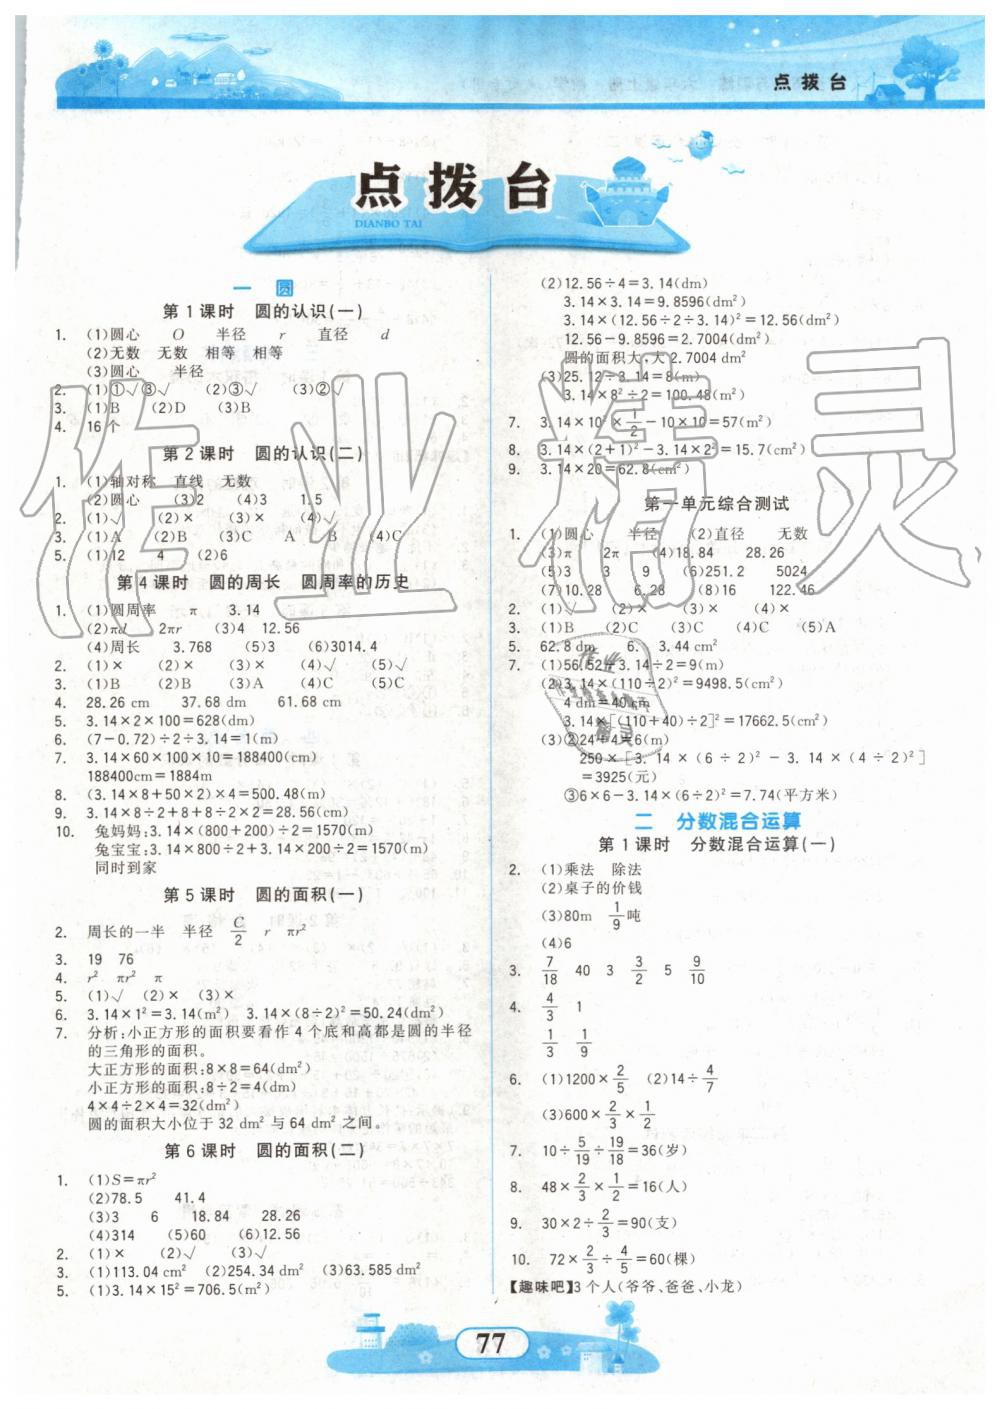 点拨台
点拨台
DIANBO TAI
一 圆
第1课时 圆的认识(一)
1. (1)圆心 O 半径 r 直径 d
(2)无数 无数 相等 相等
(3)圆心 半径
2. (1)①√③√ (2)③√ (3)②√
3. (1)B (2)D (3)B
4. 16个
第2课时 圆的认识(二)
1. (1)轴对称 直线 无数
(2)圆心 (3)2 (4)3 1.5
2. (1)√ (2)× (3)× (4)√
3. (1)A (2)B (3)C A B (4)C
5. (1)12 4 (2)6
第4课时 圆的周长 圆周率的历史
1. (1)圆周率 π 3.14
(2)πd 2πr (3)4 12.56
(4)周长 3.768 (5)3 (6)3014.4
2. (1)× (2)× (3)× (4)√ (5)√
3. (1)B (2)B (3)A (4)C (5)C
4. 28.26 cm 37.68 dm 61.68 cm
5. 3.14×2×100=628(dm)
6. (7-0.72)÷2÷3.14=1(m)
7. 3.14×60×100×10=188400(cm)
188400cm=1884m
8. (3.14×8+50×2)×4=500.48(m)
9. 3.14×8÷2+8+8÷2×2=28.56(cm)
10. 兔妈妈:3.14×(800+200)÷2=1570(m)
兔宝宝:3.14×800÷2+3.14×200÷2=1570(m)
同时到家
第5课时 圆的面积(一)
2. 周长的一半 半径 C/2 r πr²
3. 19 76
4. r² πr² π
5. (1)√ (2)× (3)×
6. 3.14×1²=3.14(m²) 3.14×(8÷2)²=50.24(dm²)
7. 分析:小正方形的面积要看作4个底和高都是圆的半径
的三角形的面积。
大正方形的面积:8×8=64(dm²)
小正方形的面积:8÷2=4(dm)
4×4÷2×4=32(dm²)
圆的面积大小位于32 dm²与64 dm²之间。
第6课时 圆的面积(二)
1. (1)S=πr²
(2)78.5 41.4
(3)3 6 18.84 28.26
(4)314 (5)60 (6)12.56
2. (1)× (2)√ (3)√
3. (1)113.04 cm² (2)254.34 dm² (3)63.585 dm²
5. (1)3.14×15²=706.5(m²)
(2)12.56÷4=3.14(dm)
3.14×3.14=9.8596(dm²)
3.14×(12.56÷2÷3.14)²=12.56(dm²)
12.56-9.8596=2.7004(dm²)
圆的面积大,大2.7004 dm²
(3)25.12÷3.14=8(m)
3.14×8²÷2=100.48(m²)
7. 3.14×10²×1/2-10×10=57(m²)
8. 3.14×(2+1)²-3.14×2²=15.7(m²)
9. 3.14×20=62.8(cm²)
第一单元综合测试
1. (1)圆心 半径 (2)直径 无数
(3)π 2π (4)18.84 28.26
(5)3 3 9 (6)251.2 5024
(7)10.28 6.28 (8)16 122.46
2. (1)√ (2)× (3)× (4)×
3. (1)B (2)C (3)C (4)C (5)A
5. 62.8 dm 6. 3.44 cm²
7. (1)56.52÷3.14÷2=9(m)
(2)3.14×(110÷2)²=9498.5(m²)
4 dm=40 cm
3.14×[(110+40)÷2]²=17662.5(cm²)
(3)②24÷4=6(m)
250×[3.14×(6÷2)²-3.14×(2÷2)²]
=3925(元)
③6×6-3.14×(6÷2)²=7.74(平方米)
二 分数混合运算
第1课时 分数混合运算(一)
2. (1)乘法 除法
(2)桌子的价钱
(3)80m 1/9吨
(4)6
3. 7/18 40 3 3/2 5 9/10
4. 4/3 1
1/3 1/9
6. (1)1200×2/5 (2)14÷4/7
(3)600×2/3×1/2
7. 10÷5/19÷19/18=36(岁)
8. 48×2/3×1/2=16(人)
9. 30×2÷2/3=90(支)
10. 72×2/3÷4/5=60(棵)
【趣味吧】3个人(爷爷、爸爸、小龙)
77
作业精灵